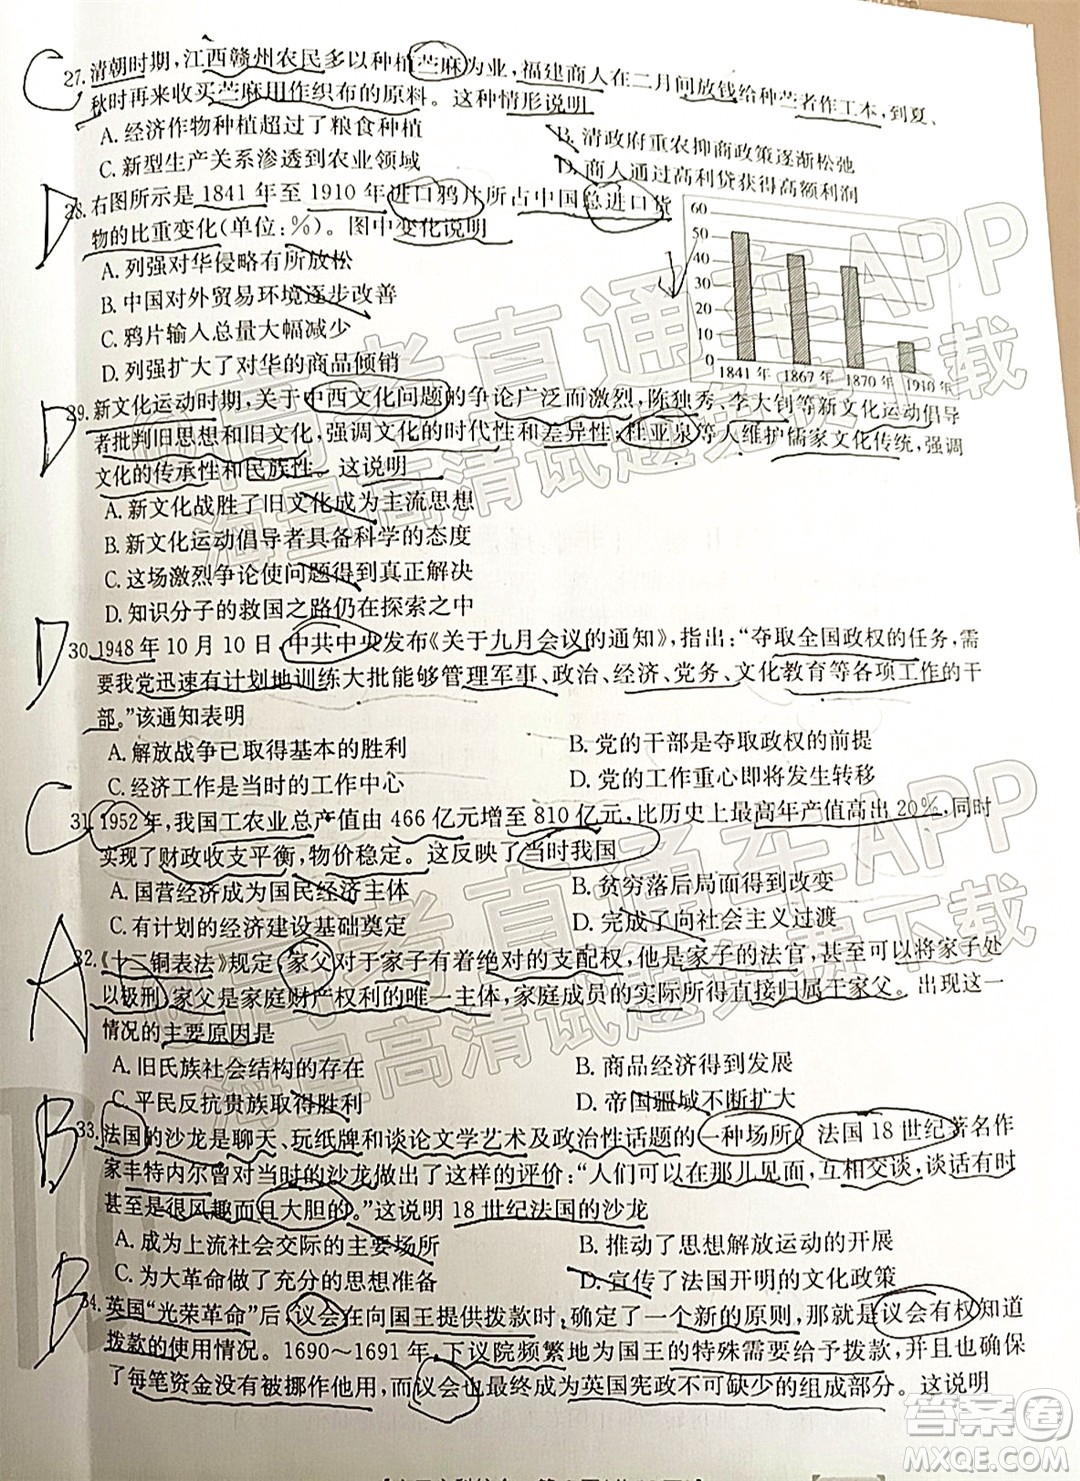 C 27.清朝时期,江西赣州农民多以种植苎麻为业,福建商人在二月间放钱给种苎者作工本,到夏、
秋时再来收买苎麻用作织布的原料。这种情形说明
A.经济作物种植超过了粮食种植 B.清政府重农抑商政策逐渐松弛
C.新型生产关系渗透到农业领域 D.商人通过高利贷获得高额利润
D 28.右图所示是1841年至1910年进口鸦片所占中国总进口货
物的比重变化(单位:%)。图中变化说明
A.列强对华侵略有所放松
B.中国对外贸易环境逐步改善
C.鸦片输人总量大幅减少
D.列强扩大了对华的商品倾销
60
50
40
30
20
10
0
1841年 1867年 1870年 1910年
D 29.新文化运动时期,关于中西文化问题的争论广泛而激烈,陈独秀、李大钊等新文化运动倡导
者批判旧思想和旧文化,强调文化的时代性和差异性;杜亚泉等人维护儒家文化传统,强调
文化的传承性和民族性。这说明
A.新文化战胜了旧文化成为主流思想
B.新文化运动倡导者具备科学的态度
C.这场激烈争论使问题得到真正解决
D.知识分子的救国之路仍在探索之中
D 30.1948年10月10日,中共中央发布《关于九月会议的通知》,指出:“夺取全国政权的任务,需
要我党迅速有计划地训练大批能够管理军事、政治、经济、党务、文化教育等各项工作的干
部。”该通知表明
A.解放战争已取得基本的胜利 B.党的干部是夺取政权的前提
C.经济工作是当时的工作中心 D.党的工作重心即将发生转移
C 31.1952年,我国工农业总产值由466亿元增至810亿元,比历史上最高年产值高出20%,同时
实现了财政收支平衡,物价稳定。这反映了当时我国
A.国营经济成为国民经济主体 B.贫穷落后局面得到改变
C.有计划的经济建设基础奠定 D.完成了向社会主义过渡
A 32.《十二铜表法》规定,家父对于家子有着绝对的支配权,他是家子的法官,甚至可以将家子处
以极刑,家父是家庭财产权利的唯一主体,家庭成员的实际所得直接归属于家父。出现这一
情况的主要原因是
A.旧氏族社会结构的存在 B.商品经济得到发展
C.平民反抗贵族取得胜利 D.帝国疆域不断扩大
B 33.法国的沙龙是聊天、玩纸牌和谈论文学艺术及政治性话题的一种场所。法国18世纪著名作
家丰特内尔曾对当时的沙龙做出了这样的评价:“人们可以在那儿见面,互相交谈,谈话有时
甚至是很风趣而且大胆的。”这说明18世纪法国的沙龙
A.成为上流社会交际的主要场所 B.推动了思想解放运动的开展
C.为大革命做了充分的思想准备 D.宣传了法国开明的文化政策
B 34.英国“光荣革命”后,议会在向国王提供拨款时,确定了一个新的原则,那就是议会有权知道
拨款的使用情况。1690~1691年,下议院频繁地为国王的特殊需要给予拨款,并且还确保
了每笔资金没有被挪作他用,而议会也最终成为英国宪政不可缺少的组成部分。这说明
高考直通车APP
海量高清试题免费下载
高考直通车APP
海量高清试题免费下载
答案圈
MXQE.COM